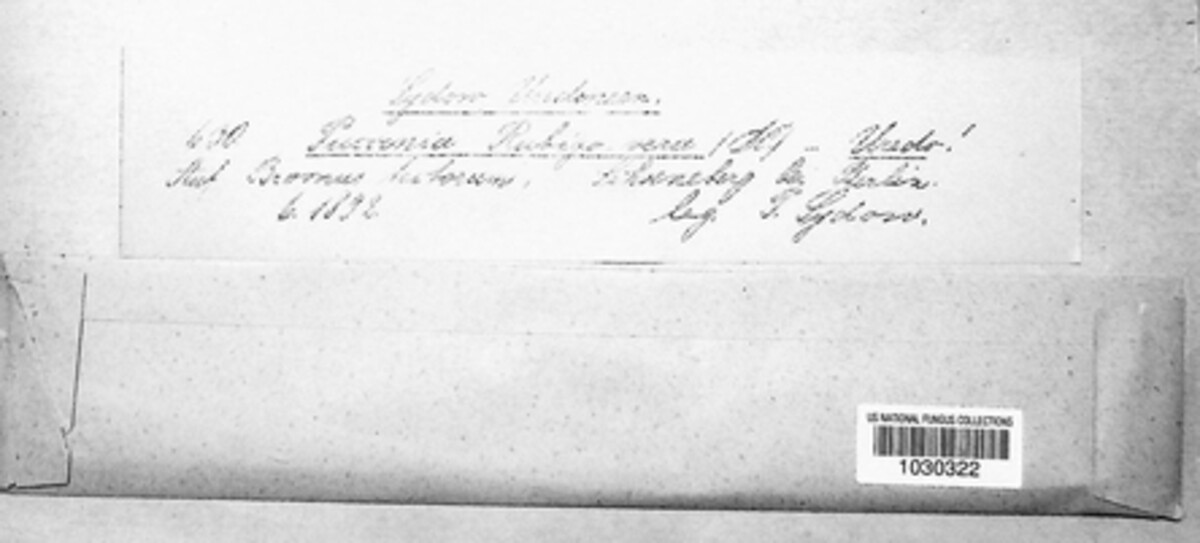 Sydow Uredineen.
630 Puccinia Rubigo vera (DC) – Uredo!
Auf Bromus tectorum, Schoeneberg bei Berlin.
6. 1892 leg. P. Sydow.
US NATIONAL FUNGUS COLLECTIONS
1030322